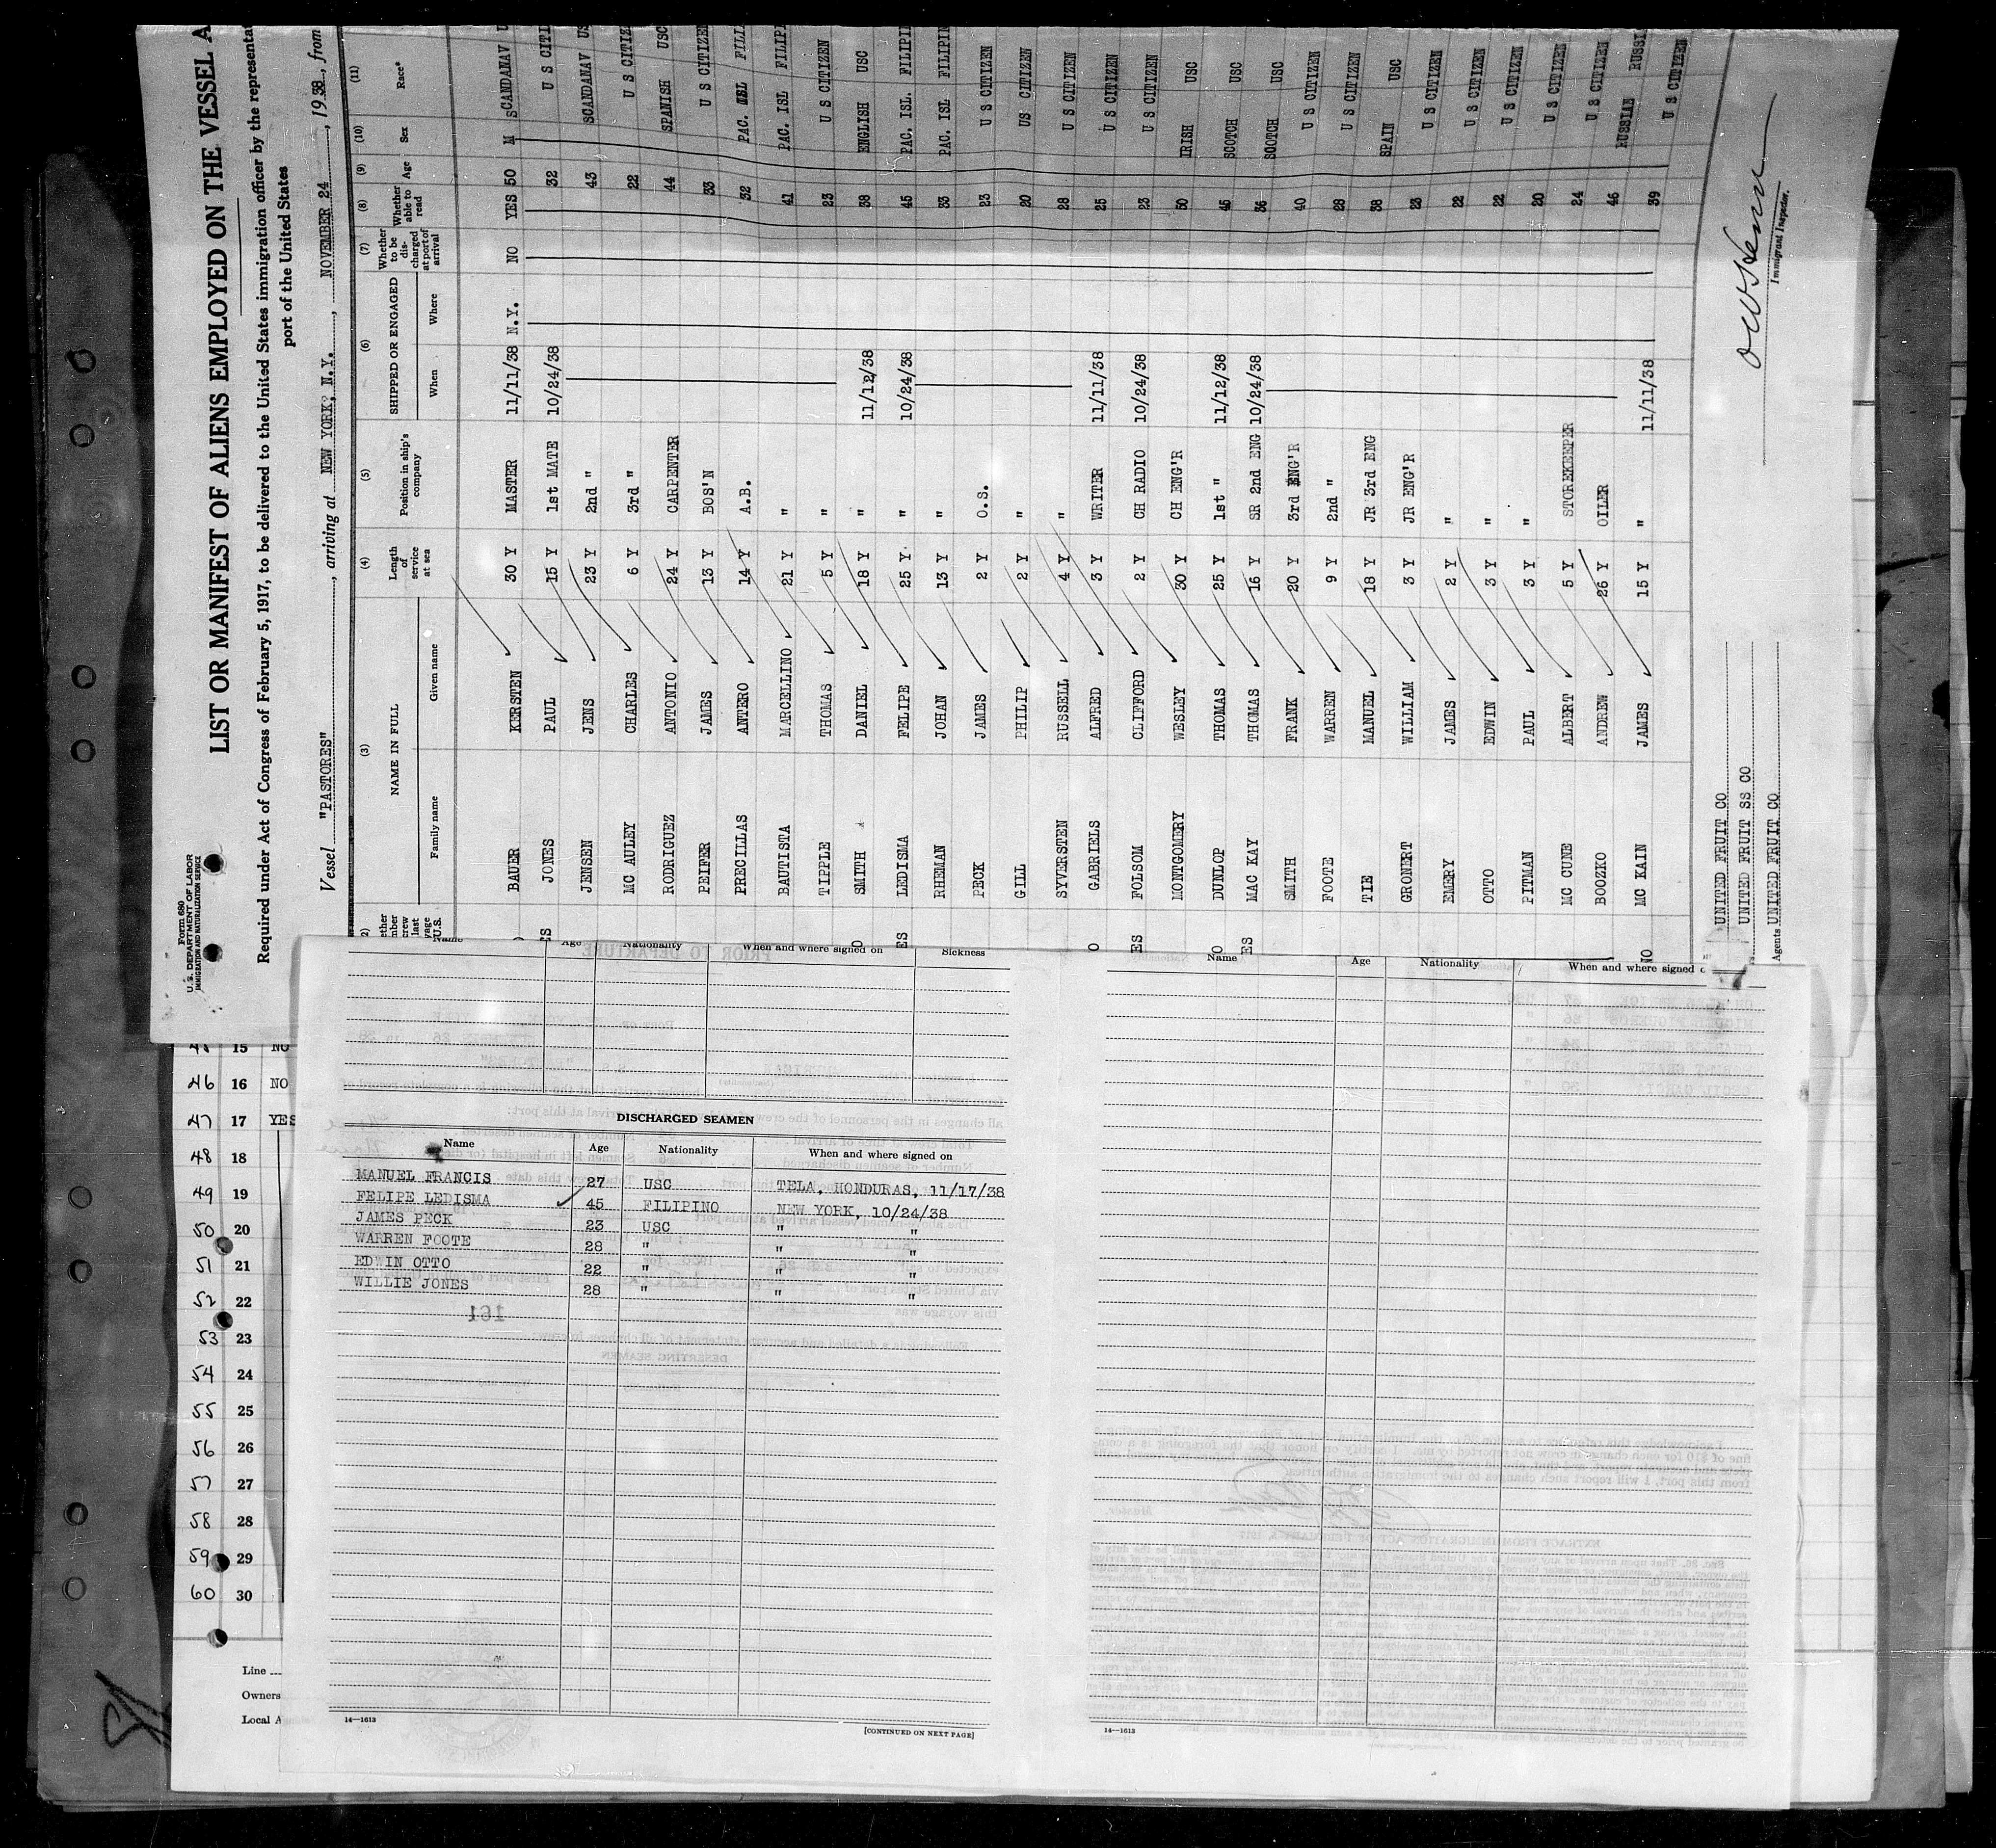 Form 680
U.S. DEPARTMENT OF LABOR
IMMIGRATION AND NATURALIZATION SERVICE
LIST OR MANIFEST OF ALIENS EMPLOYED ON THE VESSEL A
Required under Act of Congress of February 5, 1917, to be delivered to the United States immigration officer by the representa
port of the United States
Vessel "PASTORES", arriving at NEW YORK, N.Y., NOVEMBER 24, 1938, from
(3) (4) (5) (6) (7) (8) (9) (10) (11)
NAME IN FULL Length of service at sea Position in ship's company SHIPPED OR ENGAGED Whether to be discharged at port of arrival Whether able to read Age Sex Race*
Family name Given name When Where
BAUER KERSTEN 30 Y MASTER 11/11/38 N.Y. NO YES 50 M SCANDANAV U
JONES PAUL 15 Y 1st MATE 10/24/38 32 U S CITI
JENSEN JENS 23 Y 2nd " 43 SCANDANAV US
MC AULEY CHARLES 6 Y 3rd " 22 U S CITIZ
RODRIGUEZ ANTONIO 24 Y CARPENTER 44 SPANISH USC
PEIFER JAMES 13 Y BOS'N 33 U S CITIZEN
PRECILLAS ANTERO 14 Y A.B. 32 PAC. ISL FILI
BAUTISTA MARCELLINO 21 Y " 41 PAC. ISL FILIPI
TIPPLE THOMAS 5 Y " 23 U S CITIZEN
SMITH DANIEL 18 Y " 11/12/38 38 ENGLISH USC
LEDISMA FELIPE 25 Y " 10/24/38 45 PAC. ISL. FILIPIN
RHEMAN JOHAN 13 Y " 33 PAC. ISL FILIPIN
PECK JAMES 2 Y O.S. 23 U S CITIZEN
GILL PHILIP 2 Y " 20 US CITIZEN
SYVERSTEN RUSSELL 4 Y " 28 U S CITIZEN
GABRIELS ALFRED 3 Y WRITER 11/11/38 25 U S CITIZEN
FOLSOM CLIFFORD 2 Y CH RADIO 10/24/38 23 U S CITIZEN
MONTGOMERY WESLEY 30 Y CH ENG'R 50 IRISH USC
DUNLOP THOMAS 25 Y 1st " 11/12/38 45 SCOTCH USC
MAC KAY THOMAS 16 Y SR 2nd ENG 10/24/38 36 SCOTCH USC
SMITH FRANK 20 Y 3rd ENG'R 40 U S CITIZEN
FOOTE WARREN 9 Y 2nd " 28 U S CITIZEN
TIE MANUEL 18 Y JR 3rd ENG 38 SPAIN USC
GRONERT WILLIAM 3 Y JR ENG'R 23 U S CITIZEN
EMERY JAMES 2 Y " 22 U S CITIZEN
OTTO EDWIN 3 Y " 22 U S CITIZEN
PITMAN PAUL 3 Y " 20 U S CITIZEN
MC CUNE ALBERT 5 Y STOREKEEPER 24 U S CITIZEN
BOOZKO ANDREW 26 Y OILER 46 RUSSIAN RUSSI
MC KAIN JAMES 15 Y " 11/11/38 39 U S CITIZEN
UNITED FRUIT CO
UNITED FRUIT SS CO
Agents UNITED FRUIT CO
Immigrant Inspector.
Name Age Nationality When and where signed on Sickness
Name Age Nationality When and where signed o
DISCHARGED SEAMEN
Name Age Nationality When and where signed on
MANUEL FRANCIS 27 USC TELA, HONDURAS, 11/17/38
FELIPE LEDISMA 45 FILIPINO NEW YORK, 10/24/38
JAMES PECK 23 USC " "
WARREN FOOTE 28 " " "
EDWIN OTTO 22 " " "
WILLIE JONES 28 " " "
161
14—1613
[CONTINUED ON NEXT PAGE]
14—1613
15 NO
46 16 NO
47 17 YES
48 18
49 19
50 20
51 21
52 22
53 23
54 24
55 25
56 26
57 27
58 28
59 29
60 30
Line
Owners
Local A